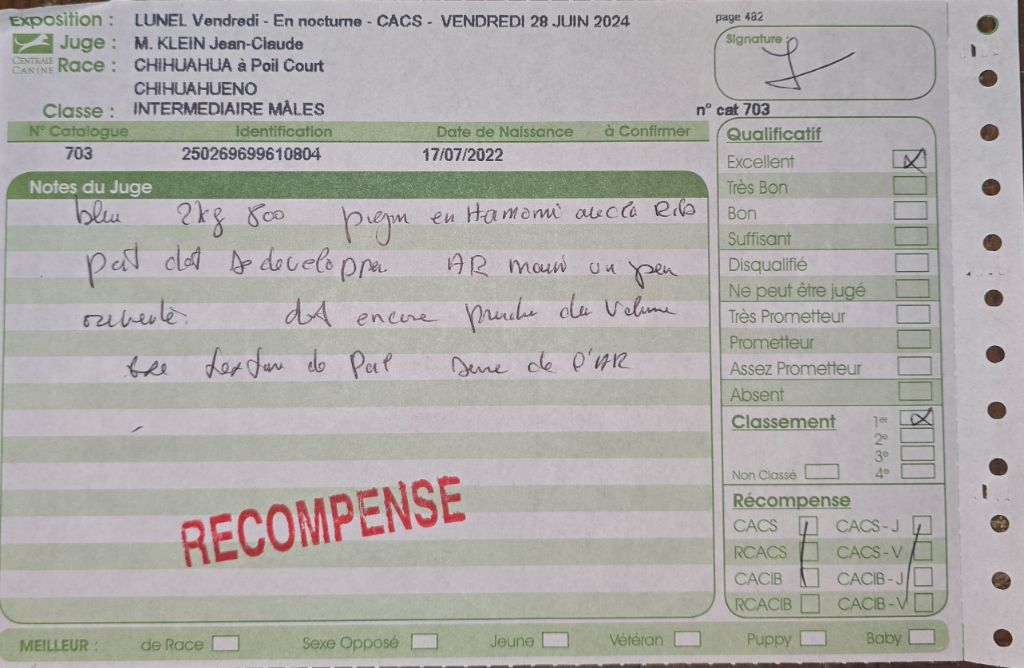 Exposition : LUNEL Vendredi - En nocturne - CACS - VENDREDI 28 JUIN 2024
page 482
CENTRALE CANINE
Juge : M. KLEIN Jean-Claude
Signature :
Race : CHIHUAHUA à Poil Court
CHIHUAHUENO
Classe : INTERMEDIAIRE MÂLES
n° cat 703
N° Catalogue Identification Date de Naissance à Confirmer
703 250269699610804 17/07/2022
Notes du Juge
bleu 2kg 800 en avec la
doit se developper AR un peu
ouverte. doit encore prendre du Volume
de de l'AR
RECOMPENSE
Qualificatif
Excellent
Très Bon
Bon
Suffisant
Disqualifié
Ne peut être jugé
Très Prometteur
Prometteur
Assez Prometteur
Absent
Classement
1er
2e
3e
Non Classé 4e
Récompense
CACS CACS-J
RCACS CACS-V
CACIB CACIB-J
RCACIB CACIB-V
MEILLEUR : de Race Sexe Opposé Jeune Vétéran Puppy Baby